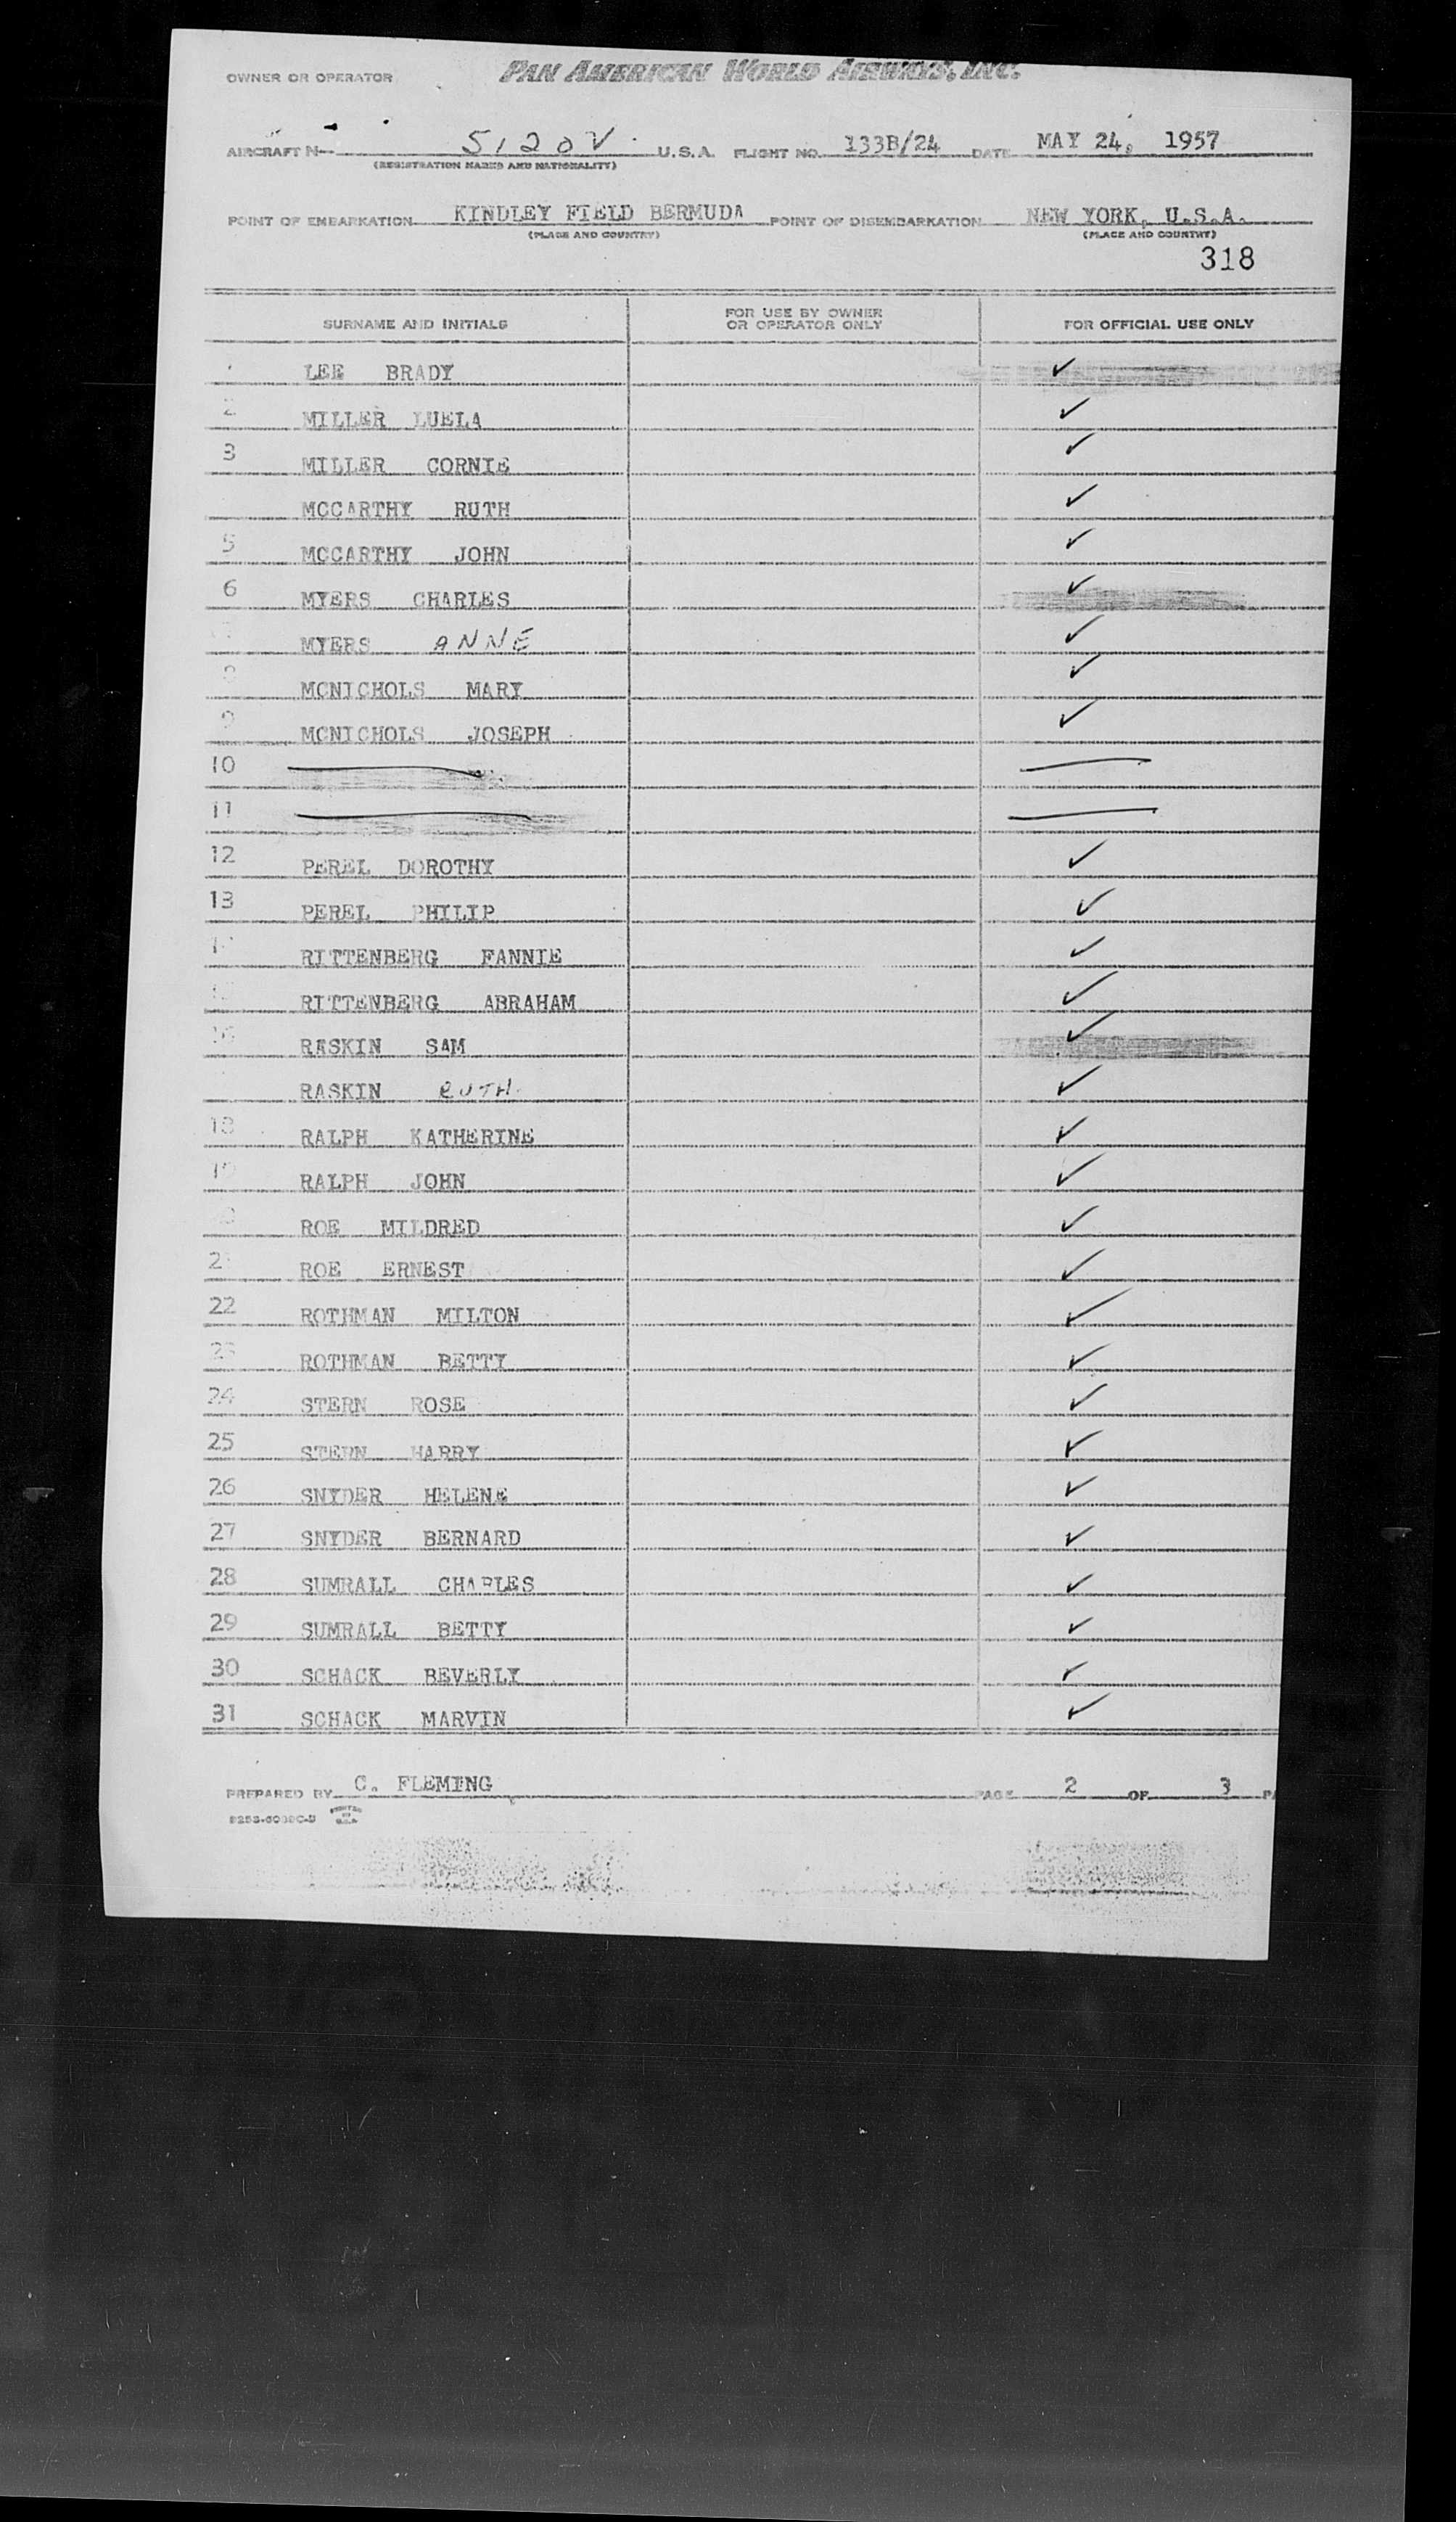 OWNER OR OPERATOR PAN AMERICAN WORLD AIRWAYS, INC.
AIRCRAFT N 5120V U.S.A. FLIGHT NO. 133B/24 DATE MAY 24, 1957
(REGISTRATION MARKS AND NATIONALITY)
POINT OF EMBARKATION KINDLEY FIELD BERMUDA POINT OF DISEMBARKATION NEW YORK, U.S.A.
(PLACE AND COUNTRY) (PLACE AND COUNTRY)
318
SURNAME AND INITIALS FOR USE BY OWNER OR OPERATOR ONLY FOR OFFICIAL USE ONLY
LEE BRADY ✓
2 MILLER LUELA ✓
3 MILLER CORNIE ✓
MCCARTHY RUTH ✓
5 MCCARTHY JOHN ✓
6 MYERS CHARLES ✓
MYERS ANNE ✓
8 MCNICHOLS MARY ✓
9 MCNICHOLS JOSEPH ✓
10
11
12 PEREL DOROTHY ✓
13 PEREL PHILIP ✓
RITTENBERG FANNIE ✓
RITTENBERG ABRAHAM ✓
16 RASKIN SAM ✓
RASKIN RUTH ✓
18 RALPH KATHERINE ✓
19 RALPH JOHN ✓
ROE MILDRED ✓
2 ROE ERNEST ✓
22 ROTHMAN MILTON ✓
23 ROTHMAN BETTY ✓
24 STERN ROSE ✓
25 STERN HARRY ✓
26 SNYDER HELENE ✓
27 SNYDER BERNARD ✓
28 SUMRALL CHARLES ✓
29 SUMRALL BETTY ✓
30 SCHACK BEVERLY ✓
31 SCHACK MARVIN ✓
PREPARED BY C. FLEMING PAGE 2 OF 3
PRINTED IN U.S.A.